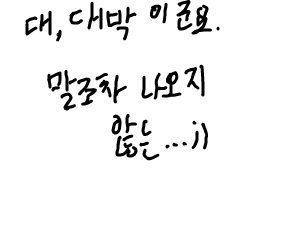 대, 대박이군요.
말조차 나오지
않는...;;